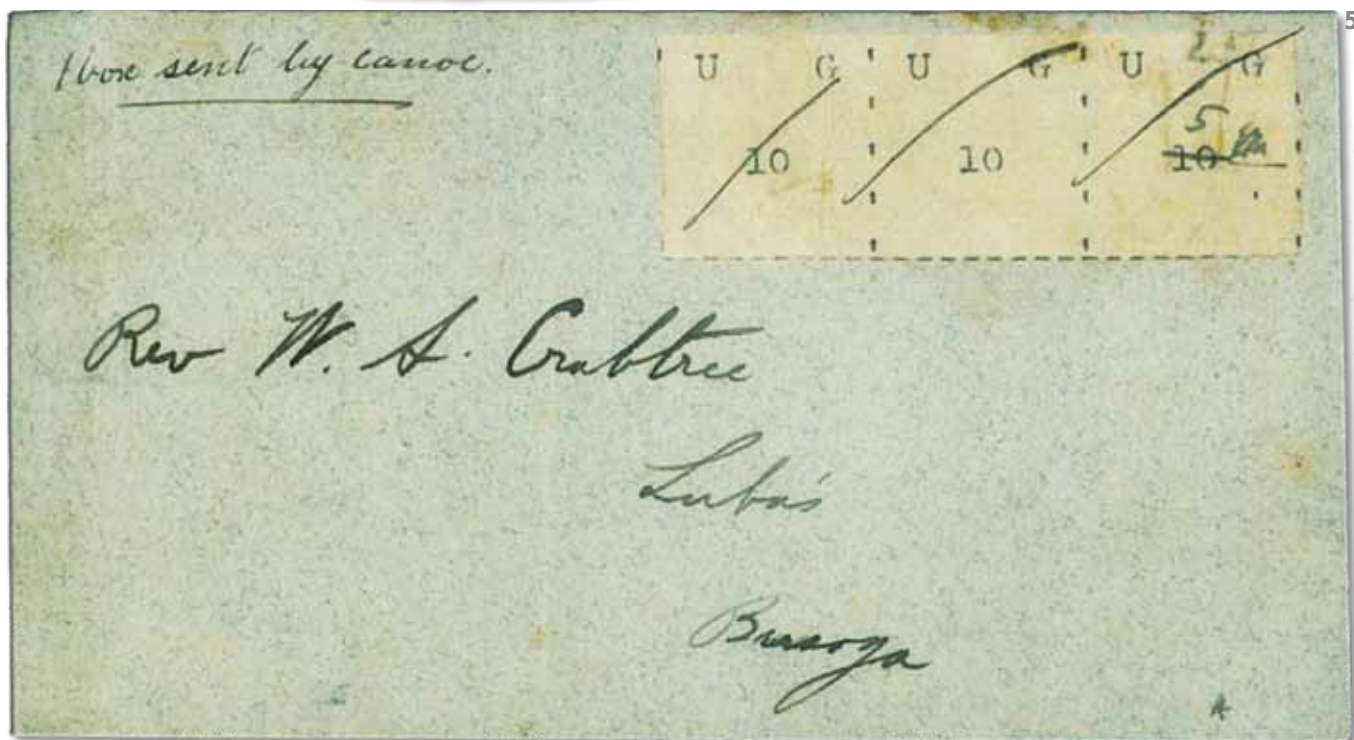 1 box sent by canoe.
U G U G U G
10 10 5
10
Rev W. A. Crabtree
Luba's
Busoga
5